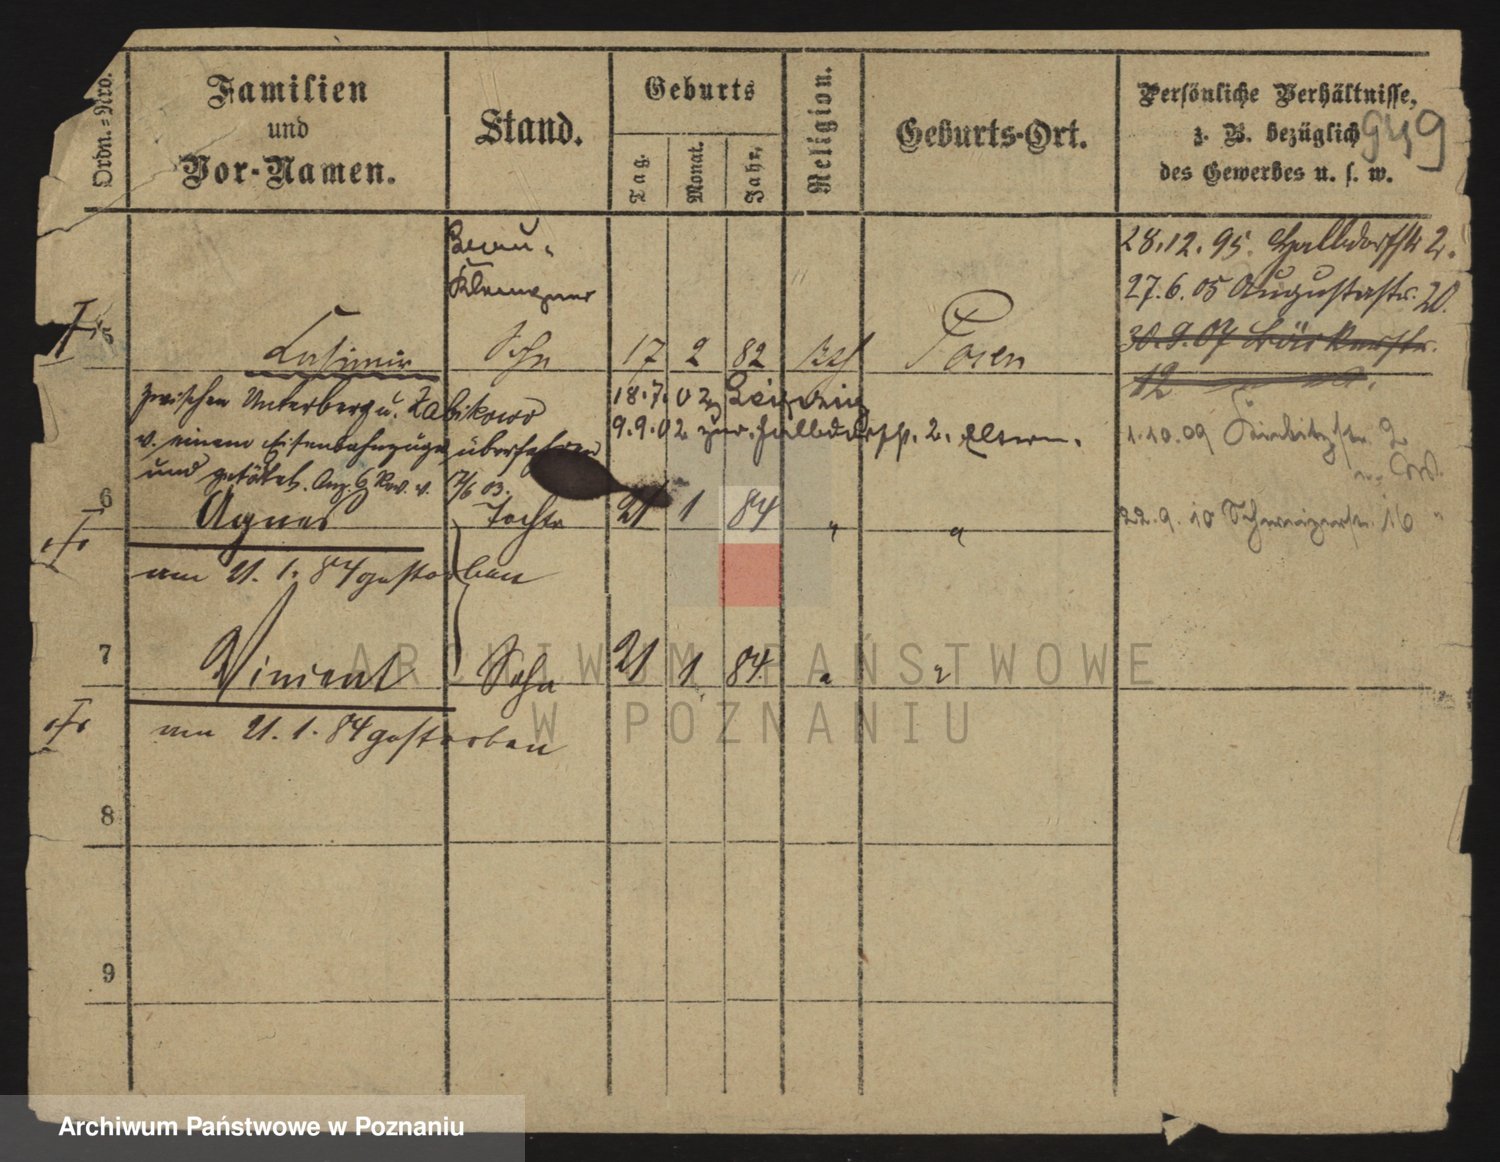 Ordn.-Nro.
Familien
und
Vor-Namen.
Stand.
Geburts
Tag.
Monat.
Jahr.
Religion.
Geburts-Ort.
Persönliche Verhältnisse,
z. B. bezüglich
des Gewerbes u. s. w.
949
28.12.95. Halbdorfstr 2.
27.6.05 Augustastr. 20.
30.9.07 Bäckerstr.
12
1.10.09
2
22.9.10 Schweizerstr. 16
5
Casimir
Sohn
17 2 82 kth Posen
zwischen Unterberg u. Zabikowo
v. einem Eisenbahnzuge überfahren
und getötet. Anz. 6 Rev. v. 7/6 03.
18.7.02 Leipzig
9.9.02 zur. Halbdorfstr. 2. Eltern.
6
Agnes
Tochter
21 1 84 " "
am 21.1.84 gestorben
7
Vincent
Sohn
21 1 84 " "
am 21.1.84 gestorben
8
9
ARCHIWUM PAŃSTWOWE
W POZNANIU
Archiwum Państwowe w Poznaniu